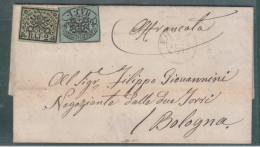 Affrancata
Al Sigr Filippo Giovannini
Negoziante dalle due Torri
Bologna